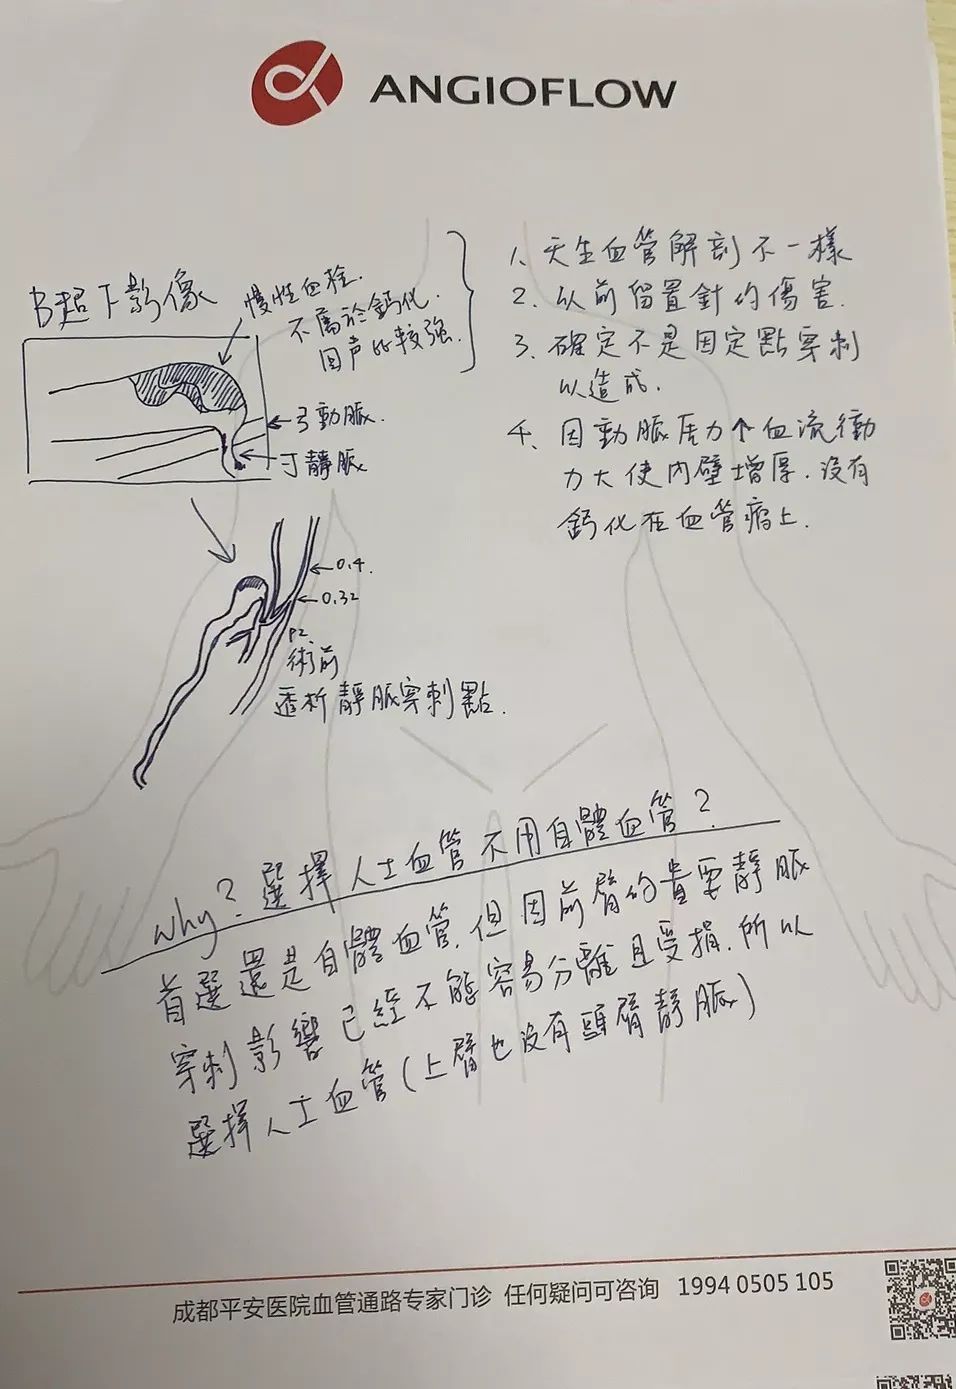 ANGIOFLOW
B超下影像
慢性血栓.
不屬於鈣化.
回声比較強.
動脈.
靜脈
1、天生血管解剖不一樣
2、以前留置針的傷害.
3、確定不是固定點穿刺
以造成.
4、因動脈壓力↑血流衝動
力大使内壁增厚.沒有
鈣化在血管瘤上.
←0.4.
←0.32
術前
透析靜脈穿刺點.
why?選擇人士血管不用自體血管?
首選還是自體血管.但因前臂的貴要靜脈
穿刺影響已經不能容易分離且受損.所以
選擇人士血管(上臂也沒有頭臂靜脈)
成都平安医院血管通路专家门诊 任何疑问可咨询 1994 0505 105